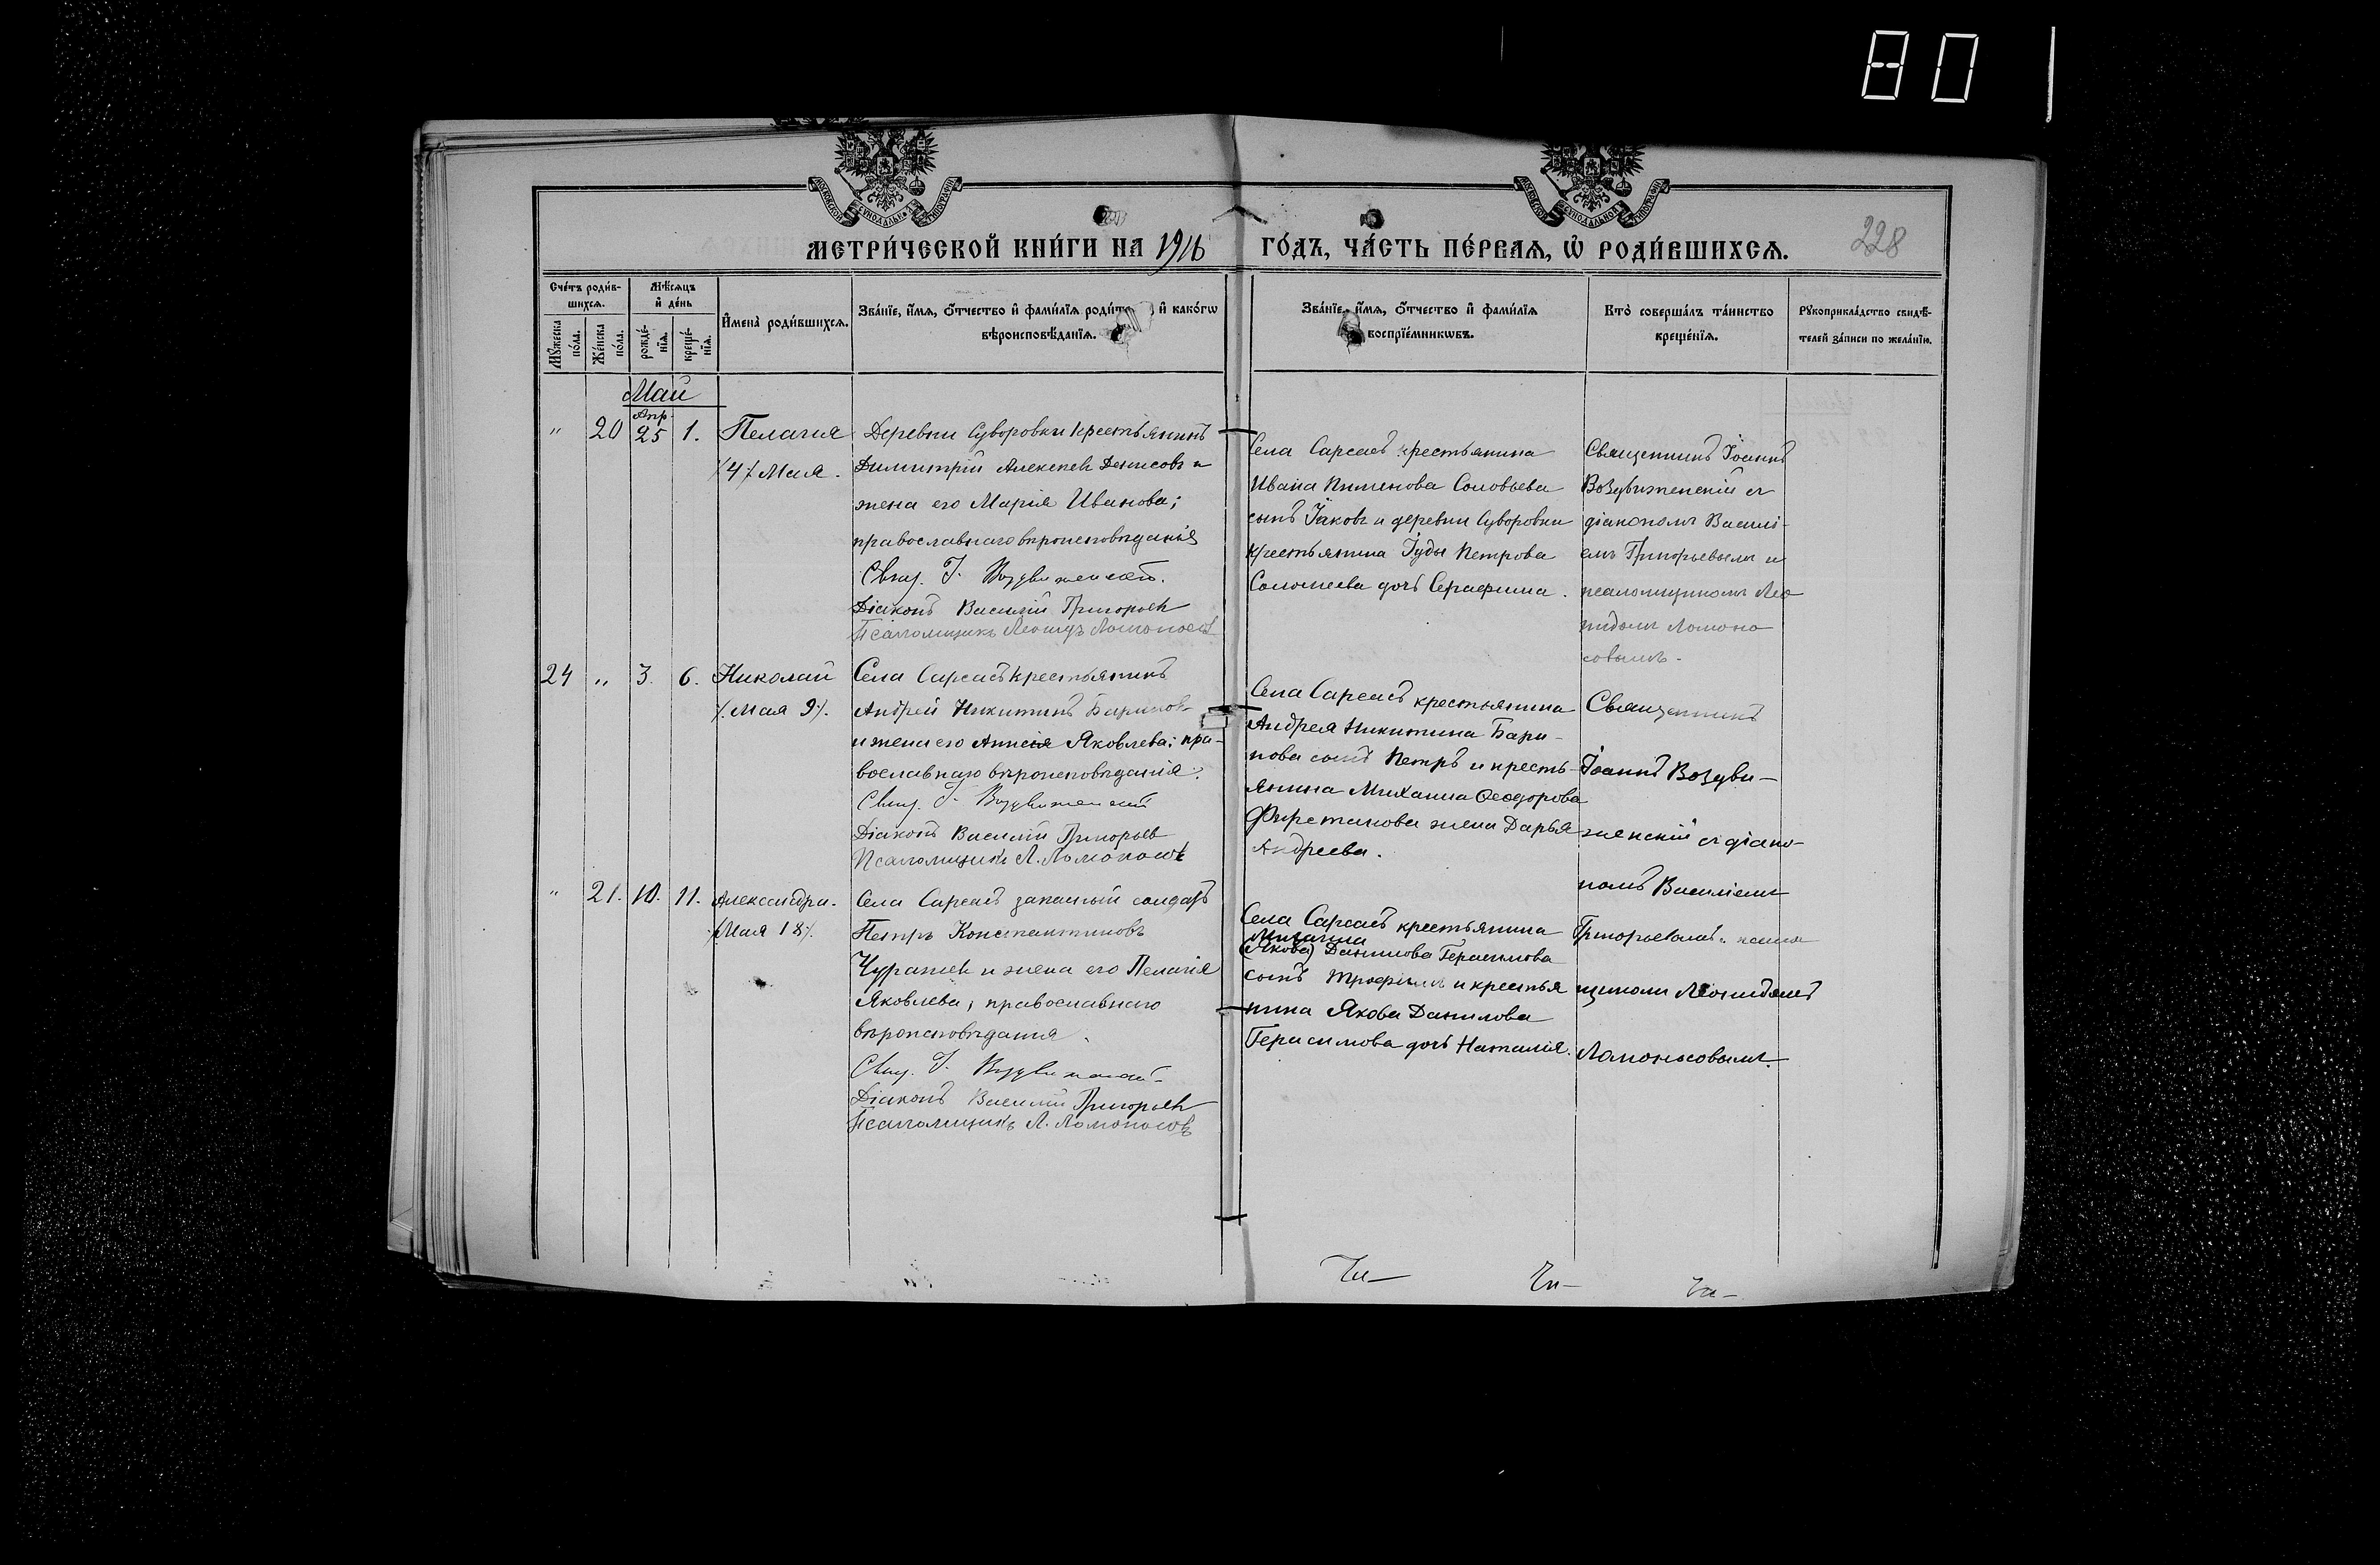 80
МОСКОВСКОЙ СѴНОДАЛЬНОЙ ТИПОГРАФІИ
МОСКОВСКОЙ СѴНОДАЛЬНОЙ ТИПОГРАФІИ
МЕТРИ́ЧЕСКОЙ КНИ́ГИ НА 1916 ГО́ДЪ, ЧА́СТЬ ПЕ́РВАѦ, Ѡ РОДИ́ВШИХСѦ.
228
Сче́тъ роди́в-
шихсѧ.
Мѣ́сѧцъ
и҆ де́нь
Мꙋ́жеска по́ла.
Же́нска по́ла.
рожде́-
нїѧ.
креще́-
нїѧ.
И҆мена̀ роди́вшихсѧ.
Зва́нїе, и҆́мѧ, ѻ҆́тчество и҆ фами́лїѧ роди́т и҆ како́гѡ
вѣроисповѣ́данїѧ.
Зва́нїе, и҆́мѧ, ѻ҆́тчество и҆ фами́лїѧ
воспрїе́мникѡвъ.
Кто̀ соверша́лъ та́инство
креще́нїѧ.
Рꙋкоприкла́дство свидѣ́-
телей за́писи по жела́нїю.
Май
" 20 Апр. 25 1. Пелагия
/4/. Мая.
Деревни Суворовки крестьянинъ
Димитрій Алексѣевъ Денисовъ и
жена его Марія Иванова;
православнаго вѣроисповѣданія
Свящ. І. Воздвиженскій.
Діаконъ Василій Григорьевъ
Псаломщикъ Леонидъ Ломоносовъ
Села Сарсасъ крестьянина
Ивана Пименова Соловьева
сынъ Іаковъ и деревни Суворовки
крестьянина Іуды Петрова
дочь Серафима.
Священникъ Іоаннъ
Воздвиженскій съ
діакономъ Василі-
емъ Григорьевымъ и
псаломщикомъ Лео
нидомъ Ломоно
совымъ.
24 " 3. 6. Николай
/. Мая 9/.
Села Сарсасъ крестьянинъ
Андрей Никитинъ Бариновъ
и жена его Анисія Яковлева; пра-
вославнаго вѣроисповѣданія.
Свящ. І. Воздвиженскій
Діаконъ Василій Григорьев
Псаломщикъ Л. Ломоносовъ
Села Сарсасъ крестьянина
Андрея Никитина Бари-
нова сынъ Петръ и кресть-
янина Михаила Ѳеодорова
жена Дарья
Андреева.
Священникъ
Іоаннъ Воздви-
женскій съ діако-
номъ Василіемъ
Григорьевымъ и псалом
щикомъ Леонидомъ
Ломоносовымъ.
" 21. 10. 11. Александра.
/Мая 18/.
Села Сарсасъ запасный солдатъ
Петръ Константиновъ
и жена его Пелагія
Яковлева; православнаго
вѣроисповѣданія.
Свящ. І. Воздвиженскій
Діаконъ Василій Григорьевъ
Псаломщикъ Л. Ломоносовъ
Села Сарсасъ крестьянина
Михаила
(Якова) Данилова Герасимова
сынъ Трофимъ и крестья
нина Якова Данилова
Герасимова дочь Наталія.